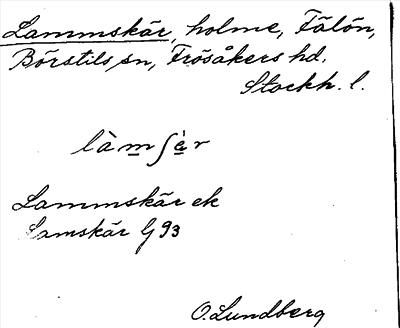 Lammskär, holme, Fälön,
Börstils sn, Frösåkers hd.
Stockh. l.
làmʃèr
Lammskär ek
Lamskär G 93
O. Lundberg